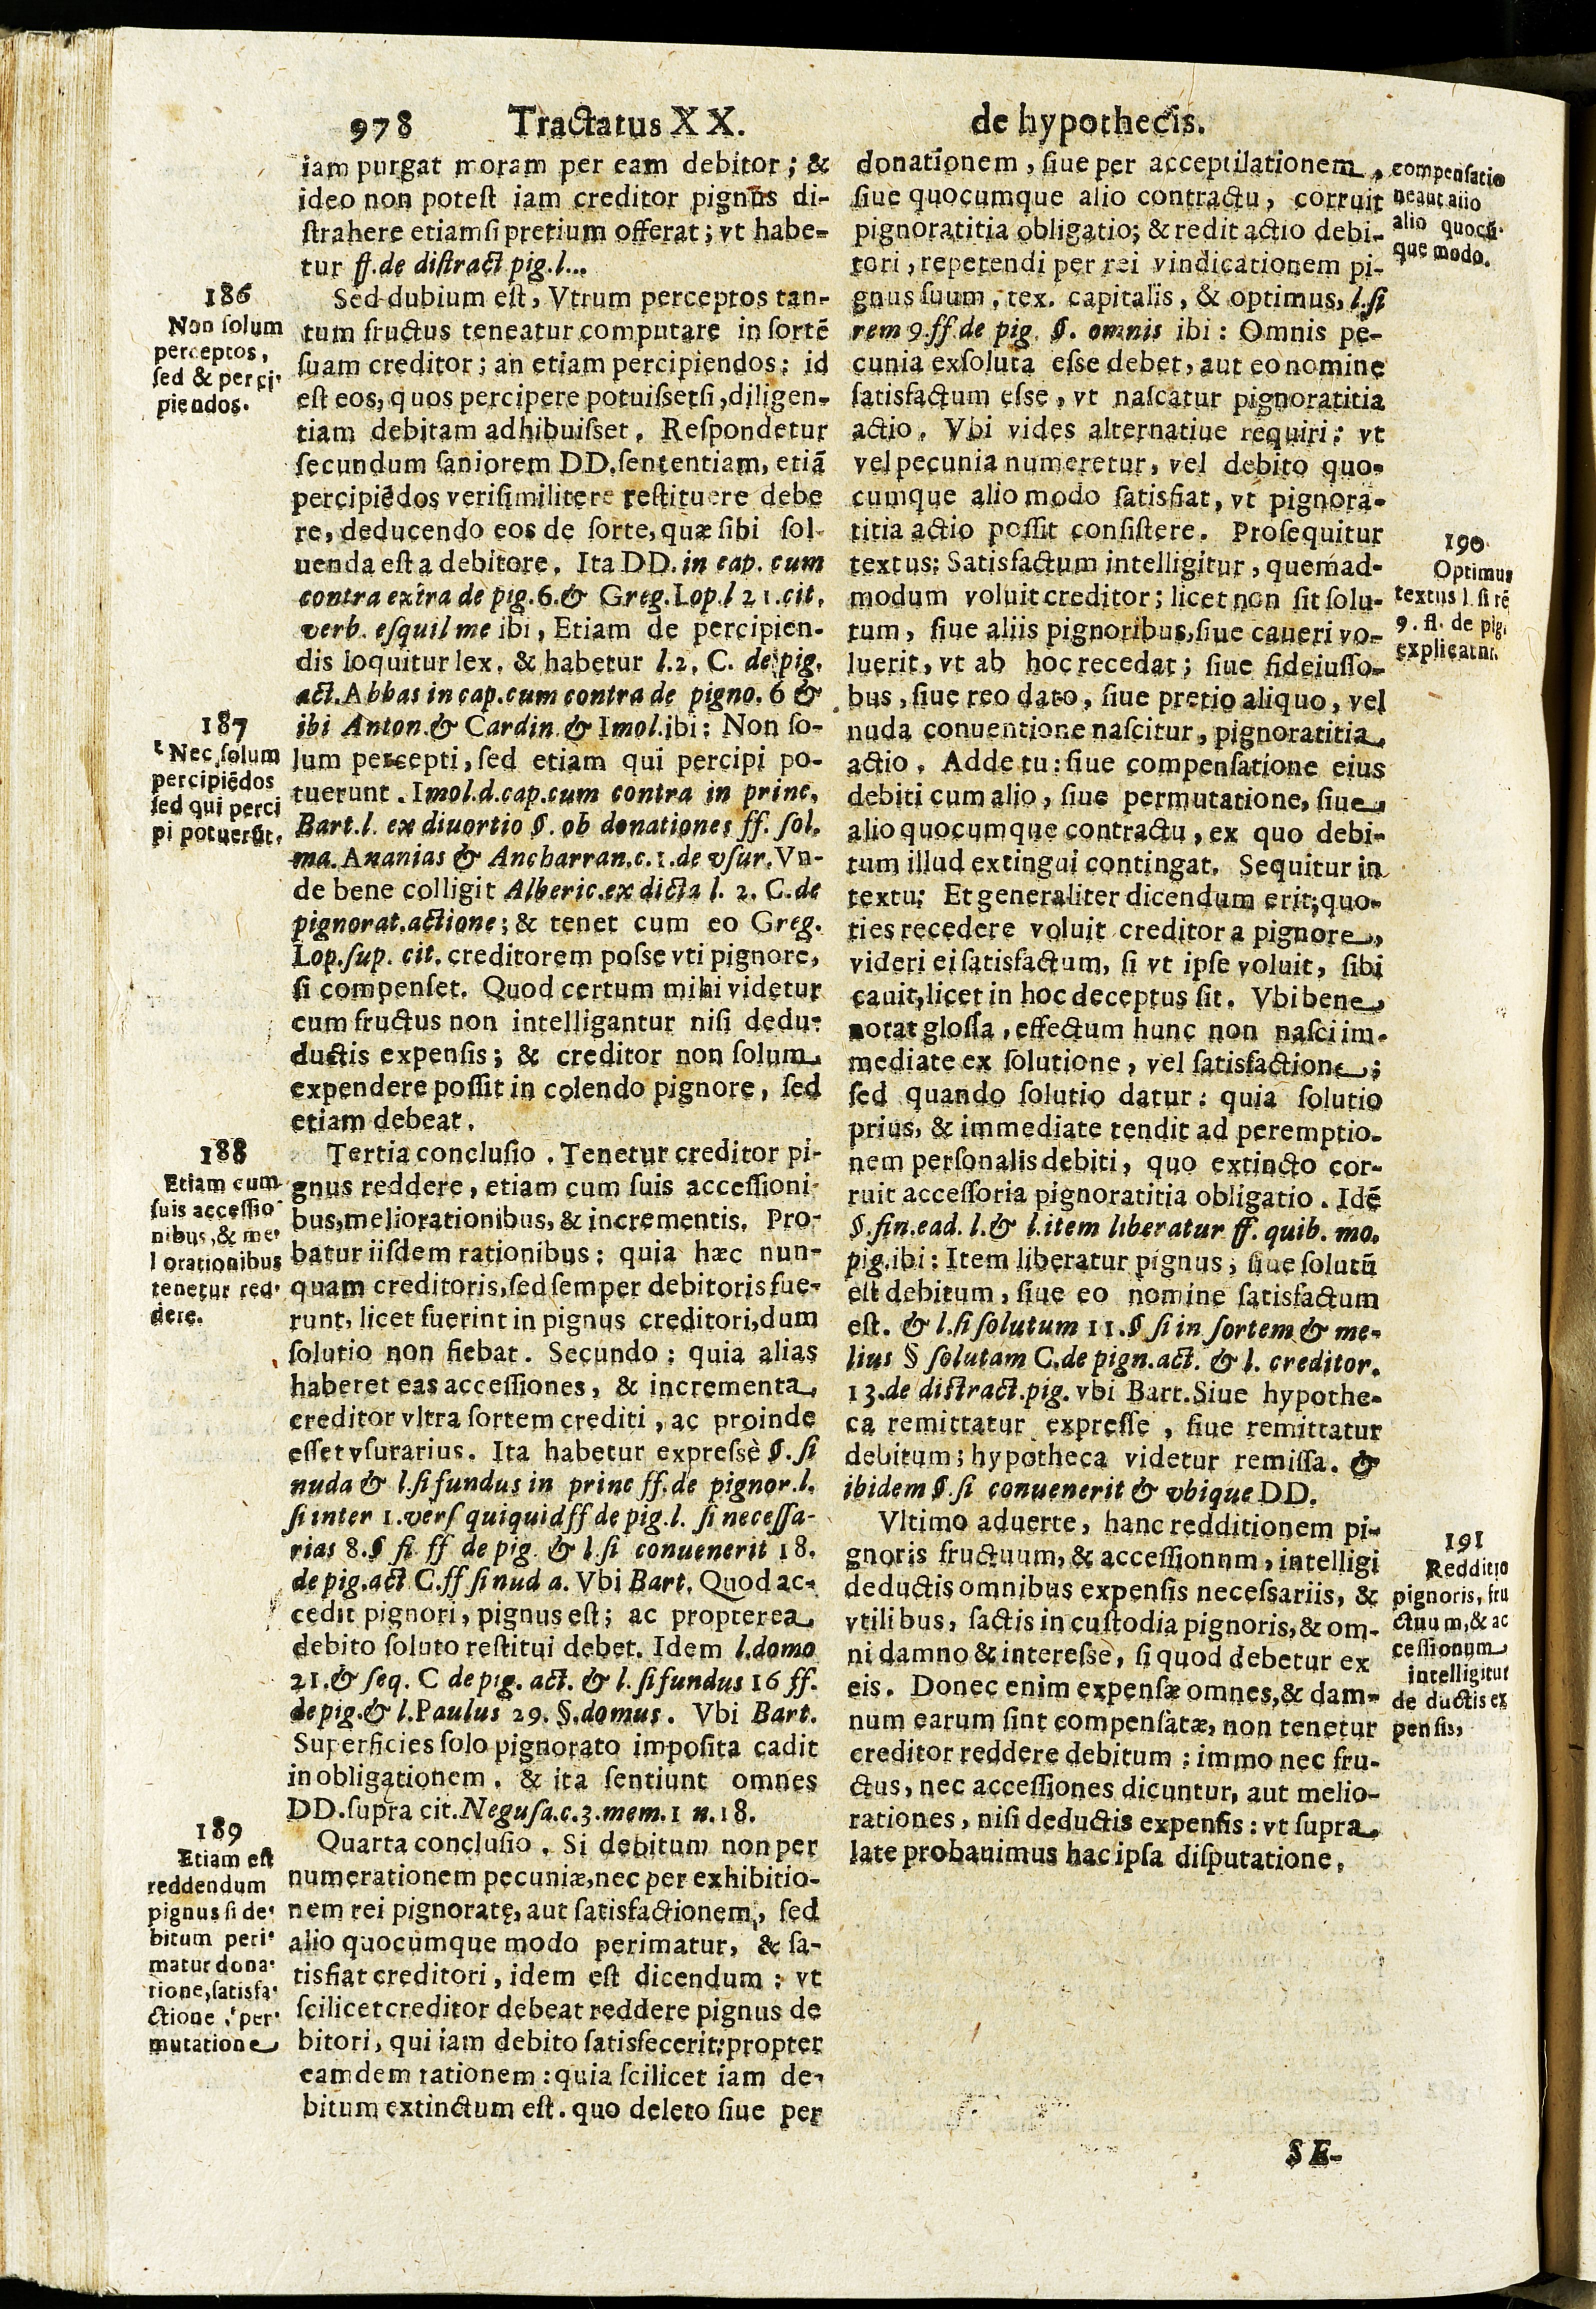 978 Tractatus XX. de hypothecis.
iam purgat moram per eam debitor; &
ideo non potest iam creditor pignus di-
strahere etiamsi pretium offerat; vt habe-
tur ff. de distract pig. l...
186
Non solum
perceptos,
sed & perci-
piendos.
Sed dubium est, Vtrum perceptos tan-
tum fructus teneatur computare in sortē
suam creditor; an etiam percipiendos; id
est eos, quos percipere potuissetsi, diligen-
tiam debitam adhibuisset. Respondetur
secundum saniorem DD. sententiam, etiā
percipiēdos verisimilitere restituere debe
re, deducendo eos de sorte, quæ sibi sol-
uenda est a debitore. Ita DD. in cap. cum
contra extra de pig. 6. & Greg. Lop. l 21. cit.
verb. esquilme ibi, Etiam de percipien-
dis loquitur lex. & habetur l. 2. C. de pig.
act. Abbas in cap. cum contra de pigno. 6 &
187
Nec solum
percipiēdos
sed qui perci
pi potuerūt.
ibi Anton. & Cardin. & Imol. ibi: Non so-
lum percepti, sed etiam qui percipi po-
tuerunt. Imol. d. cap. cum contra in princ.
Bart. l. ex diuortio §. ob donationes ff. sol.
ma. Ananias & Ancharran. c. 1. de vsur. Vn-
de bene colligit Alberic. ex dicta l. 2. C. de
pignorat. actione; & tenet cum eo Greg.
Lop. sup. cit. creditorem posse vti pignore,
si compenset. Quod certum mihi videtur
cum fructus non intelligantur nisi dedu-
ductis expensis; & creditor non solum
expendere possit in colendo pignore, sed
etiam debeat.
188
Etiam cum
suis accessio
nibus, & me-
lorationibus
tenetur red-
dere.
Tertia conclusio. Tenetur creditor pi-
gnus reddere, etiam cum suis accessioni-
bus, meliorationibus, & incrementis. Pro-
batur iisdem rationibus: quia hæc nun-
quam creditoris, sed semper debitoris fue-
runt, licet fuerint in pignus creditori, dum
solutio non fiebat. Secundo: quia alias
haberet eas accessiones, & incrementa
creditor vltra sortem crediti, ac proinde
esset vsurarius. Ita habetur expressè §. si
nuda & l. si fundus in princ ff. de pignor. l.
si inter 1. vers quiquid ff de pig. l. si necessa-
rias 8. § si ff de pig. & l. si conuenerit 18.
de pig. act C. ff si nud a. Vbi Bart. Quod ac-
cedit pignori, pignus est; ac propterea
debito soluto restitui debet. Idem l. domo
21. & seq. C de pig. act. & l. si fundus 16 ff.
de pig. & l. Paulus 29. §. domus. Vbi Bart.
Superficies solo pignorato imposita cadit
in obligationem. & ita sentiunt omnes
DD. supra cit. Negusa. c. 3. mem. 1 n. 18.
189
Etiam est
reddendum
pignus si de-
bitum peri-
matur dona-
tione, satisfa-
ctione, per-
mutatione
Quarta conclusio. Si debitum non per
numerationem pecuniæ, nec per exhibitio-
nem rei pignoratę, aut satisfactionem, sed
alio quocumque modo perimatur, & sa-
tisfiat creditori, idem est dicendum: vt
scilicet creditor debeat reddere pignus de
bitori, qui iam debito satisfecerit: propter
eamdem rationem: quia scilicet iam de-
bitum extinctum est. quo deleto siue per
donationem, siue per acceptilationem,
siue quocumque alio contractu, corruit
pignoratitia obligatio; & redit actio debi-
tori, repetendi per rei vindicationem pi-
gnus suum, tex. capitalis, & optimus, l. si
rem 9. ff de pig. §. omnis ibi: Omnis pe-
cunia exsoluta esse debet, aut eo nomine
satisfactum esse, vt nascatur pignoratitia
actio. Vbi vides alternatiue requiri: vt
vel pecunia numeretur, vel debito quo-
cumque alio modo satisfiat, vt pignora-
titia actio possit consistere. Prosequitur
textus: Satisfactum intelligitur, quemad-
modum voluit creditor; licet non sit solu-
tum, siue aliis pignoribus, siue caueri vo-
luerit, vt ab hoc recedat; siue fideiusso-
bus, siue reo dato, siue pretio aliquo, vel
nuda conuentione nascitur, pignoratitia
actio. Adde tu: siue compensatione eius
debiti cum alio, siue permutatione, siue
alio quocumque contractu, ex quo debi-
tum illud extingui contingat. Sequitur in
textu: Et generaliter dicendum erit; quo-
ties recedere voluit creditor a pignore,
videri ei satisfactum, si vt ipse voluit, sibi
cauit, licet in hoc deceptus sit. Vbi bene
notat glossa, effectum hunc non nasci im-
mediate ex solutione, vel satisfactione;
sed quando solutio datur: quia solutio
prius, & immediate tendit ad peremptio-
nem personalis debiti, quo extincto cor-
ruit accessoria pignoratitia obligatio. Idē
§. fin. ead. l. & l. item liberatur ff. quib. mo.
pig. ibi: Item liberatur pignus; siue solutū
est debitum, siue eo nomine satisfactum
est. & l. si solutum 11. § si in sortem & me-
lius § solutam C. de pign. act. & l. creditor.
13. de distract. pig. vbi Bart. Siue hypothe-
ca remittatur expresse, siue remittatur
debitum; hypotheca videtur remissa. &
ibidem §. si conuenerit & vbique DD.
Vltimo aduerte, hanc redditionem pi-
gnoris fructuum, & accessionnm, intelligi
deductis omnibus expensis necessariis, &
vtilibus, factis in custodia pignoris, & om-
ni damno & interesse, si quod debetur ex
eis. Donec enim expensæ omnes, & dam-
num earum sint compensatæ, non tenetur
creditor reddere debitum: immo nec fru-
ctus, nec accessiones dicuntur, aut melio-
rationes, nisi deductis expensis: vt supra
late probauimus hac ipsa disputatione.
compensatio
ne aut alio
alio quocū-
que modo.
190
Optimus
textus l. si rē
9. ff. de pig.
explicatur.
191
Redditio
pignoris, fru
ctuum, & ac
cessionum
intelligitur
de ductis ex
pensis,
SE-